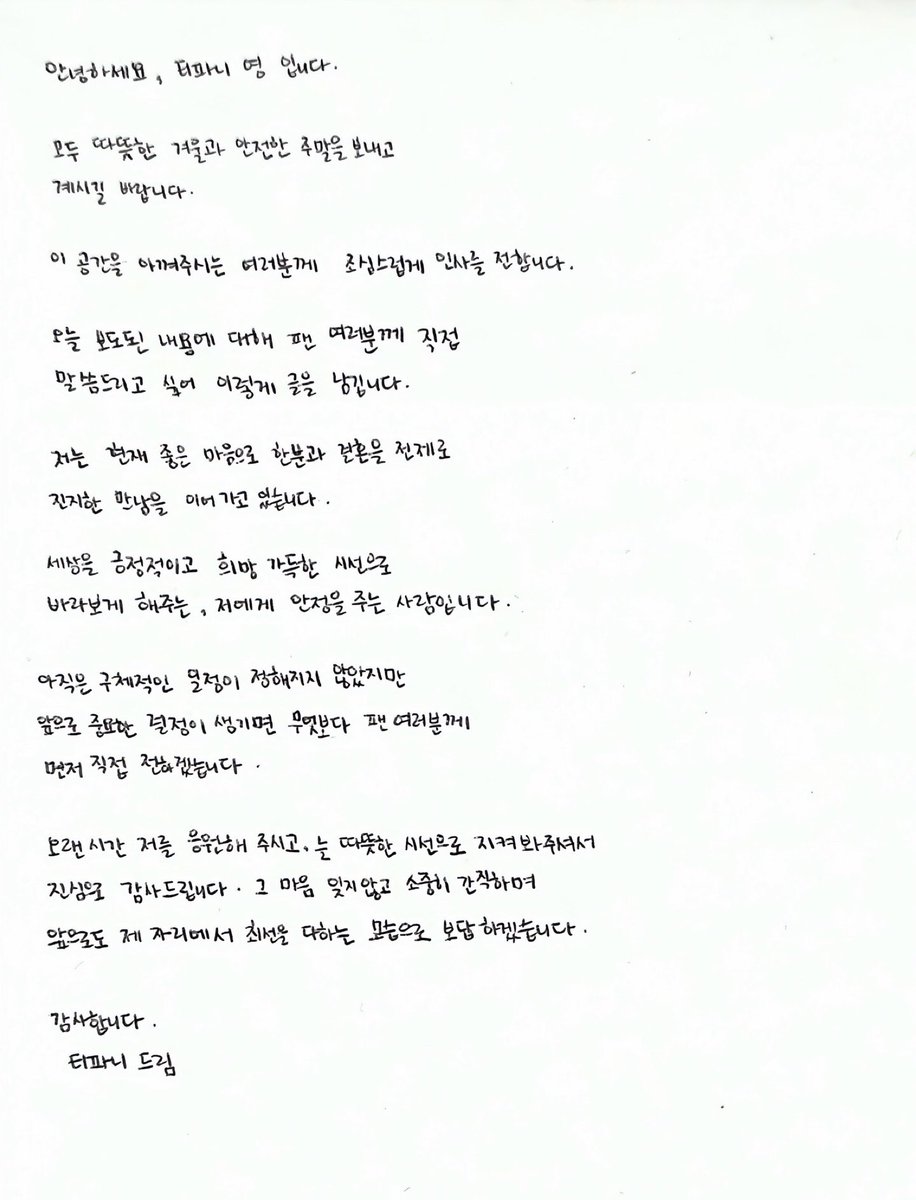 안녕하세요, 티파니 영 입니다.
모두 따뜻한 겨울과 안전한 주말을 보내고
계시길 바랍니다.
이 공간을 아껴주시는 여러분께 조심스럽게 인사를 전합니다.
오늘 보도된 내용에 대해 팬 여러분께 직접
말씀드리고 싶어 이렇게 글을 남깁니다.
저는 현재 좋은 마음으로 한분과 결혼을 전제로
진지한 만남을 이어가고 있습니다.
세상을 긍정적이고 희망 가득한 시선으로
바라보게 해주는, 저에게 안정을 주는 사람입니다.
아직은 구체적인 일정이 정해지지 않았지만
앞으로 중요한 결정이 생기면 무엇보다 팬 여러분께
먼저 직접 전하겠습니다.
오랜 시간 저를 응원해 주시고, 늘 따뜻한 시선으로 지켜봐주셔서
진심으로 감사드립니다. 그 마음 잊지않고 소중히 간직하며
앞으로도 제 자리에서 최선을 다하는 모습으로 보답하겠습니다.
감사합니다.
티파니 드림